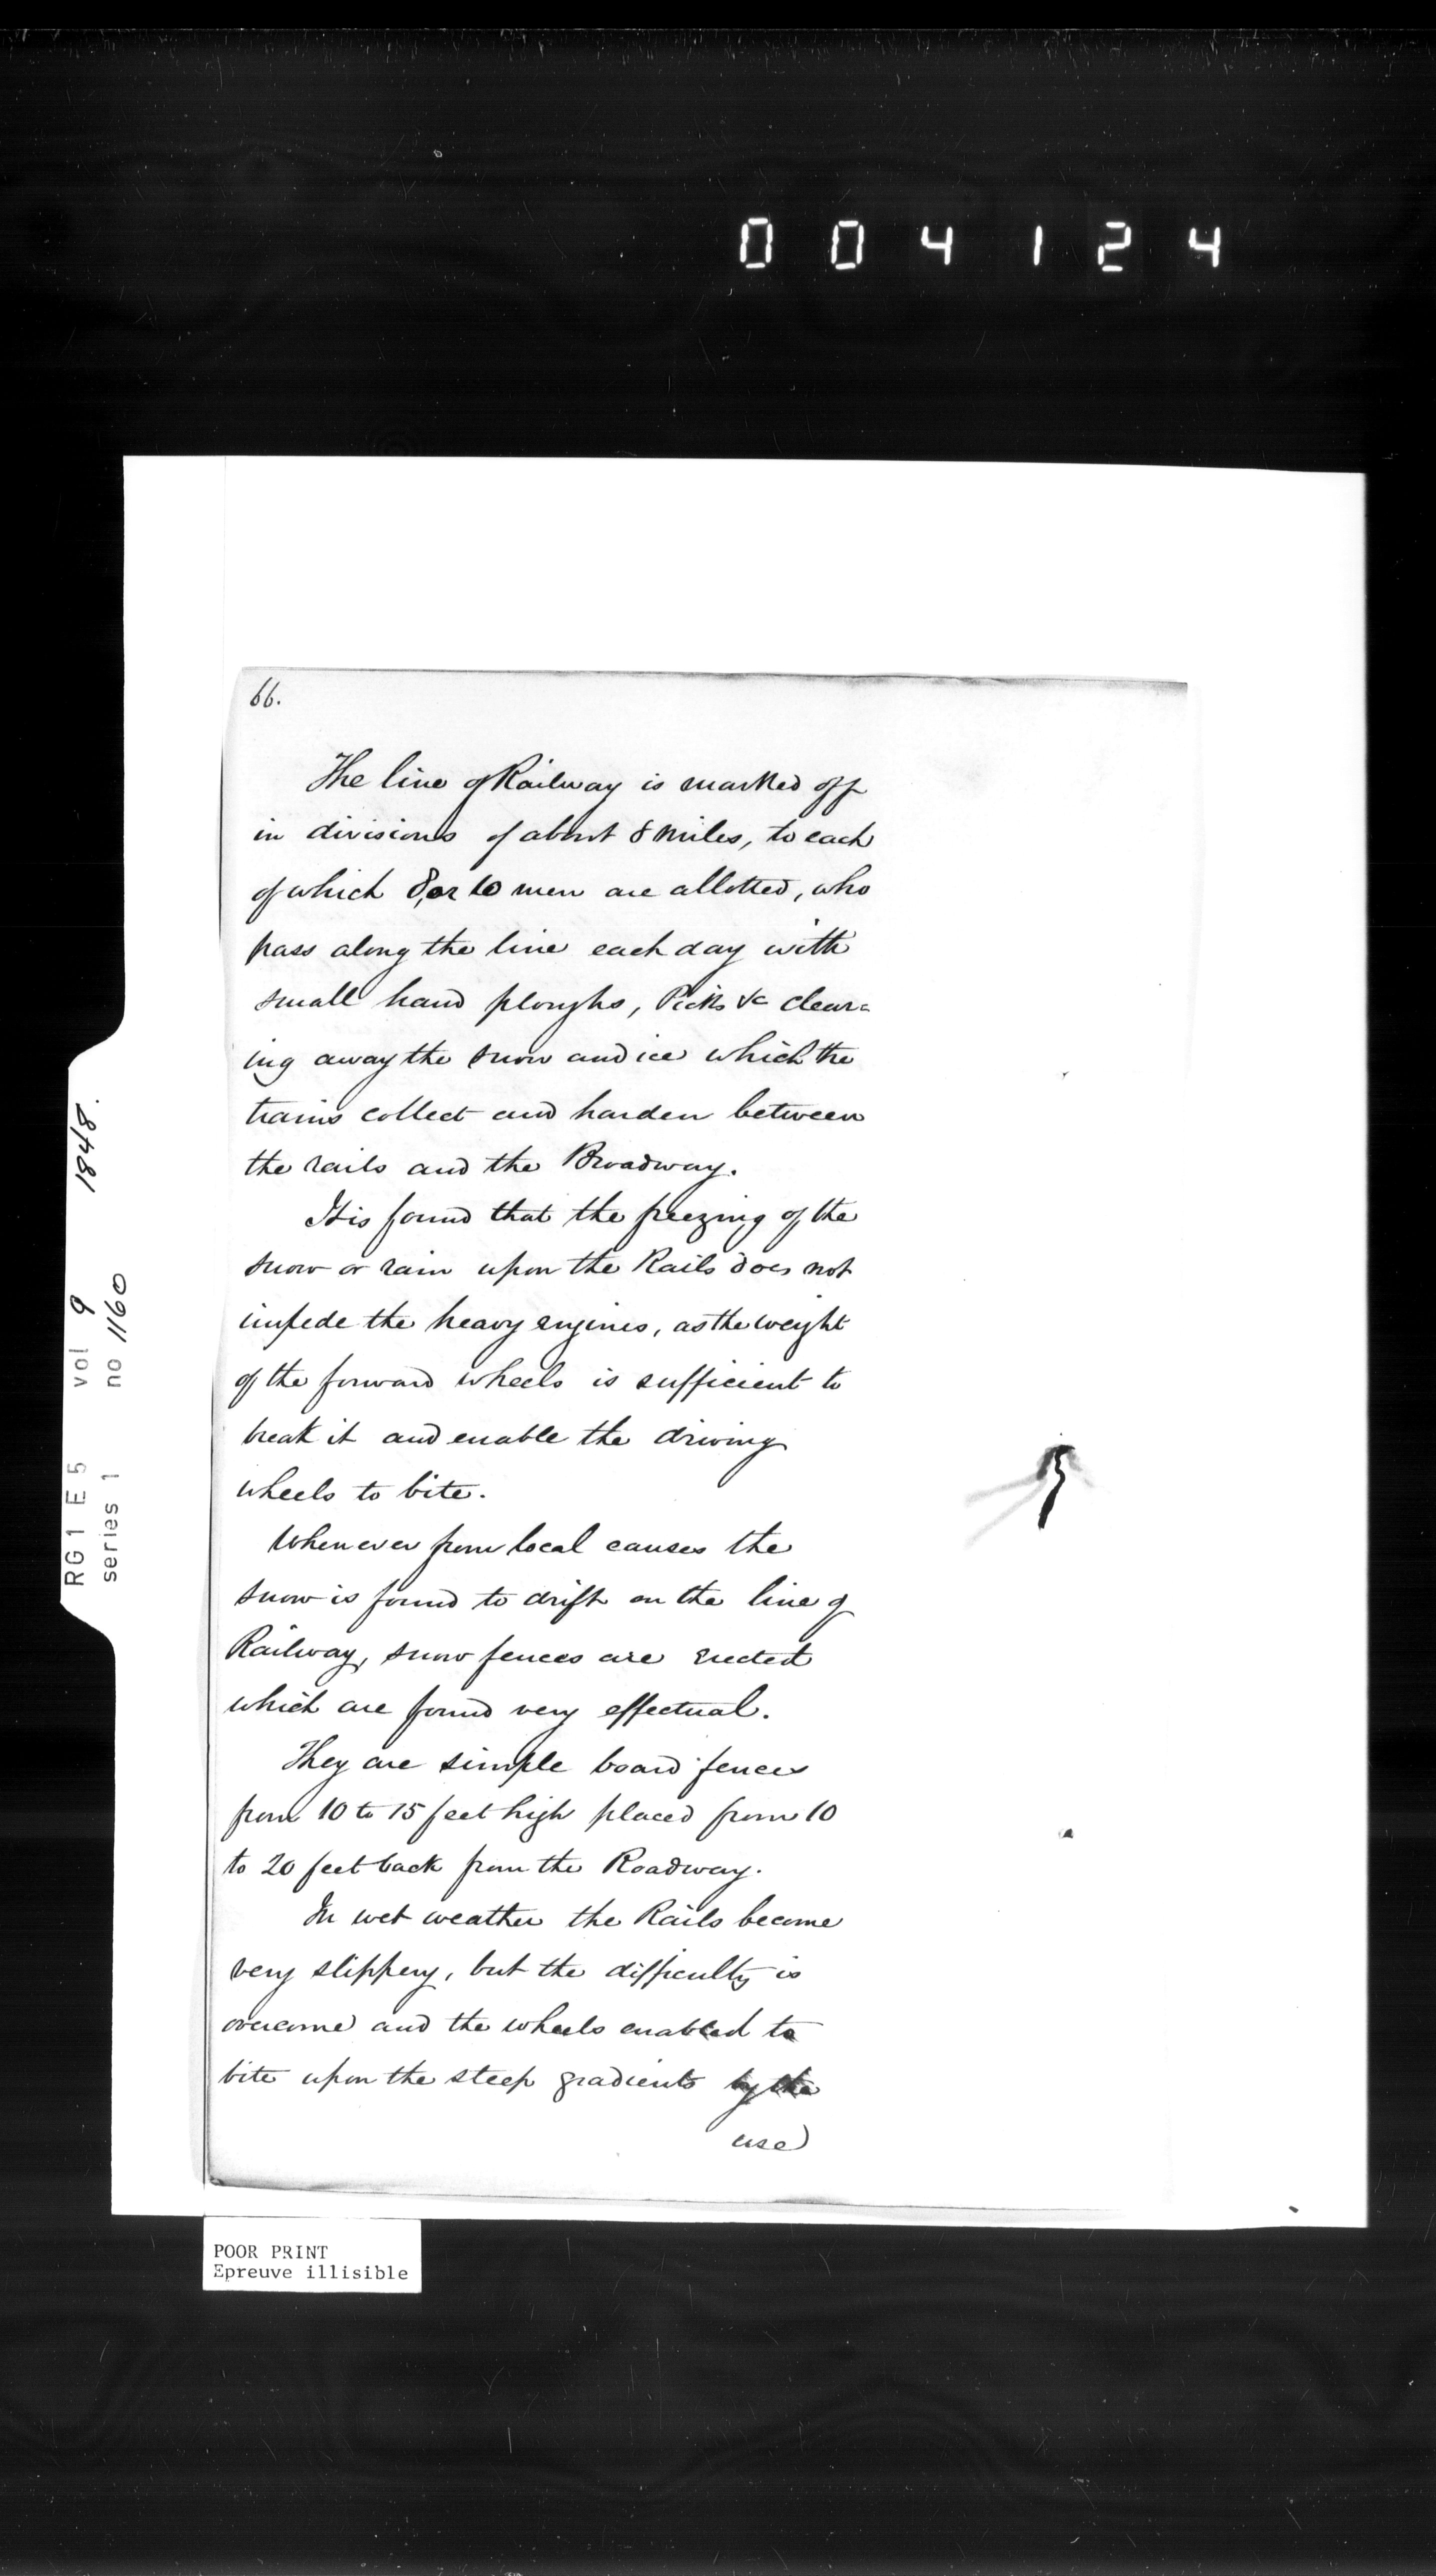 004124
66.
The line of Railway is marked off
in divisions of about 8 miles, to each
of which 8, or 10 men are allotted, who
pass along the line each day with
small hand ploughs, Picks &c clear=
ing away the snow and ice which the
trains collect and harden between
the rails and the Broadway.
It is found that the freezing of the
snow or rain upon the Rails does not
impede the heavy engines, as the weight
of the forward wheels is sufficient to
break it and enable the driving
wheels to bite.
Whenever from local causes the
snow is found to drift on the line of
Railway, snow fences are erected
which are found very effectual.
They are simple board fences
from 10 to 15 feet high placed from 10
to 20 feet back from the Roadway.
In wet weather the Rails become
very slippery, but the difficulty is
overcome and the wheels enabled to
bite upon the steep gradients by the
use
RG1 E5 vol 9 1848.
series 1 no 1160
POOR PRINT
Epreuve illisible